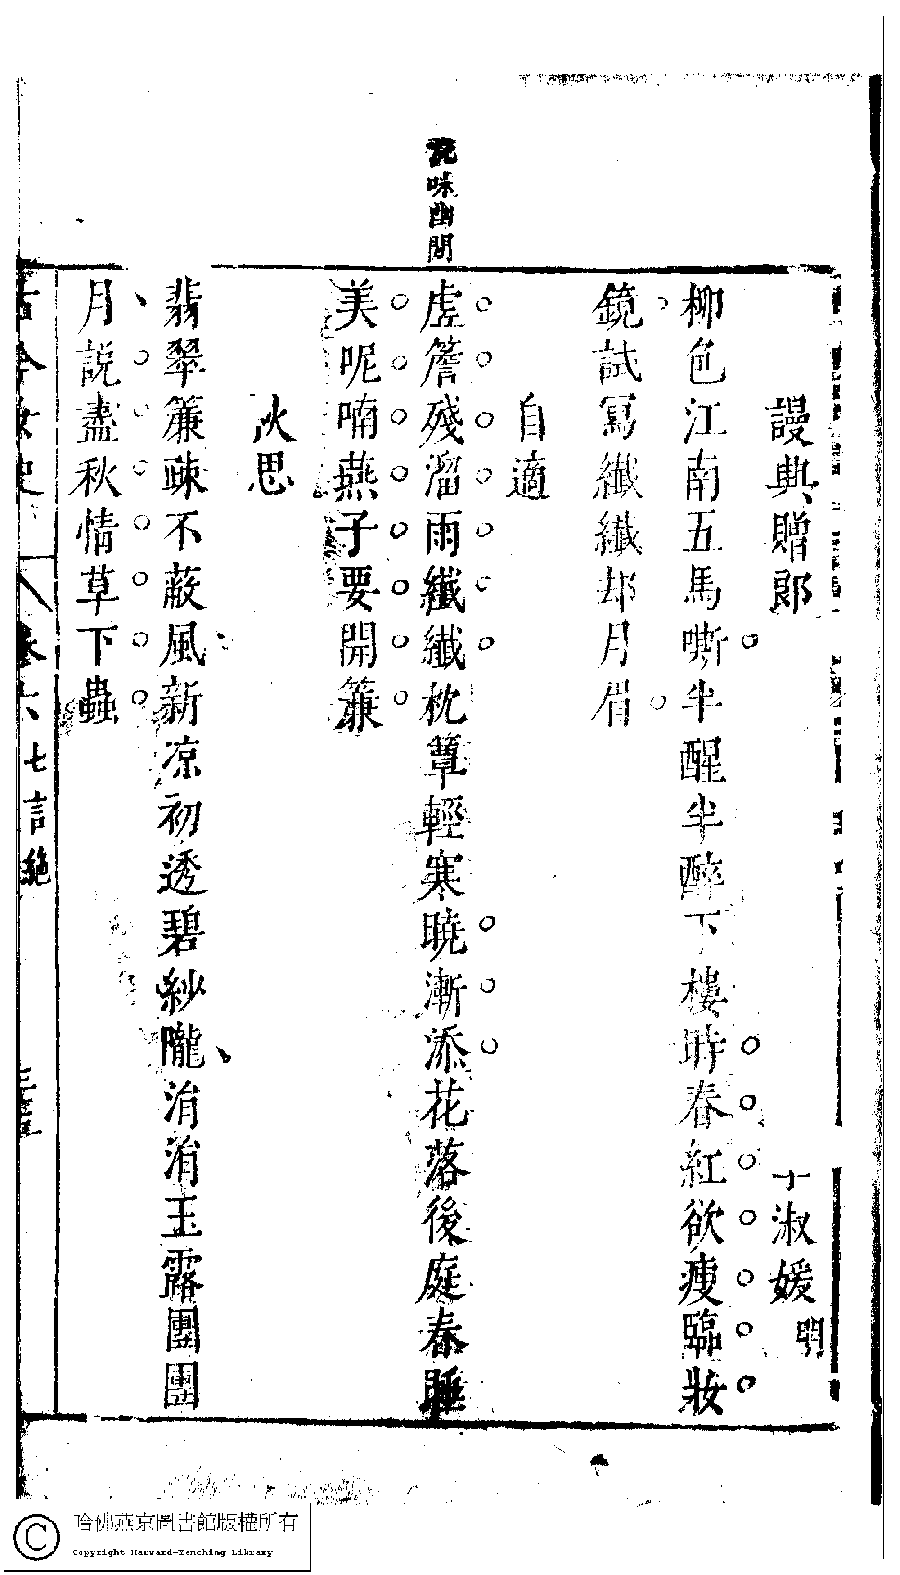 謾與贈郎 于淑媛 明
柳色江南五馬嘶半醒半醉下樓時春紅欲瘦臨妝
鏡試寫纖纖却月眉
自適
味幽閒
虛簷殘溜雨纖纖枕簟輕寒曉漸添花落後庭春睡
美呢喃燕子要開簾
秋思
翡翠簾疎不蔽風新凉初透碧紗隴涓涓玉露團團
月說盡秋情草下蟲
古今女史 卷六 七言絶
哈佛燕京圖書館版權所有
Copyright Harvard-Yenching Library